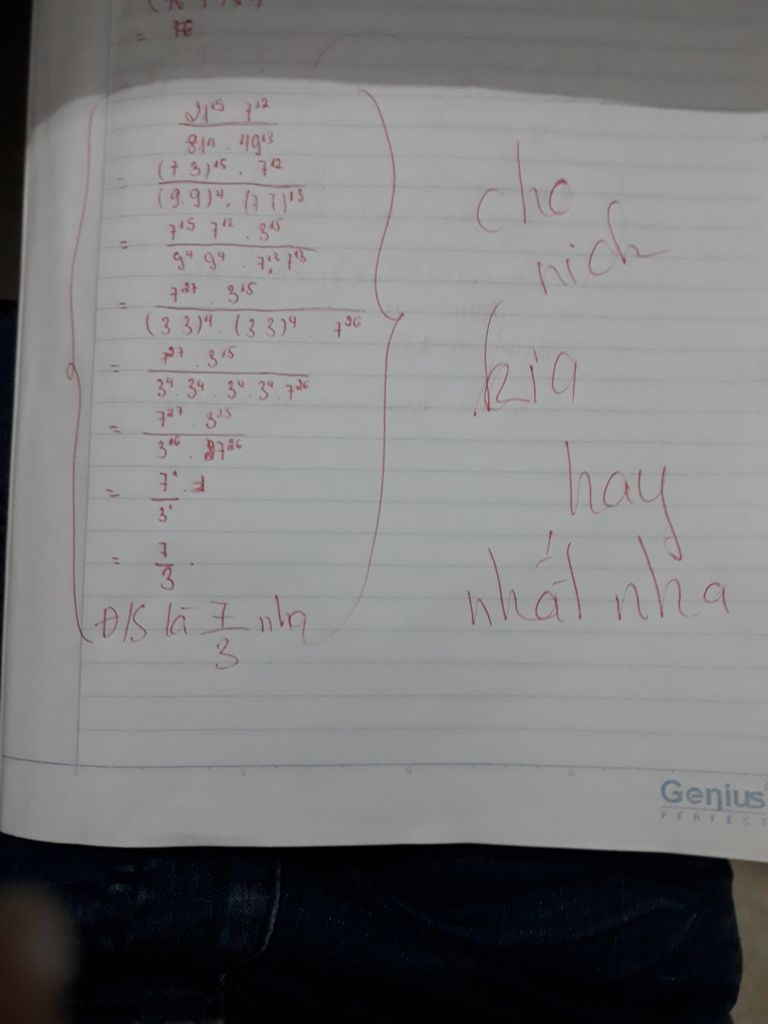 = 76
21¹⁵ . 7¹²
81⁴ . 49¹³
= (7.3)¹⁵ . 7¹²
(9.9)⁴ . (7 7)¹³
= 7¹⁵ 7¹² . 3¹⁵
9⁴ 9⁴ . 7¹³ . 7¹³
= 7²⁷ . 3¹⁵
(3 3)⁴ . (3 3)⁴ . 7²⁶
= 7²⁷ . 3¹⁵
3⁴ . 3⁴ . 3⁴ . 3⁴ . 7²⁶
= 7²⁷ . 3¹⁵
3¹⁶ . 7²⁶
= 7¹ . 1
3¹
= 7
3 .
Đ/S là 7/3 nha
cho
nich
kia
hay
nhất nha
Genius
PERFECT